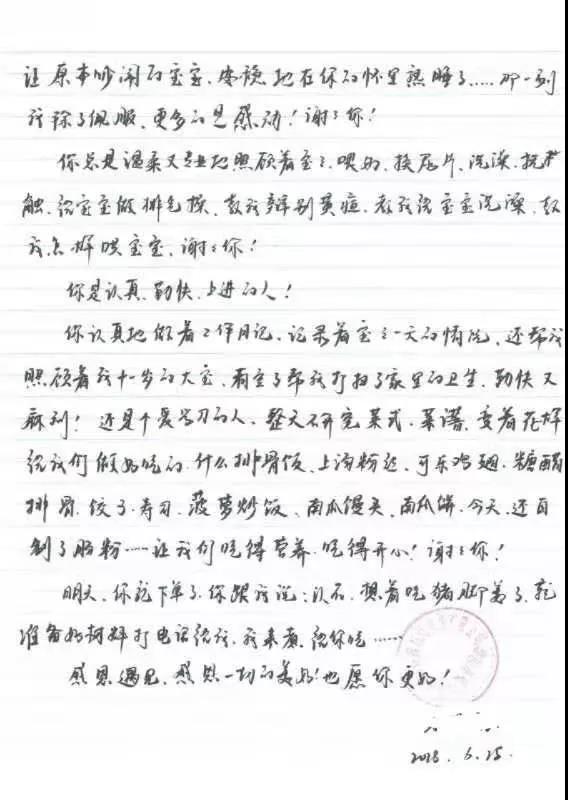 让原本吵闹的宝宝、安稳地在你的怀里熟睡了……那一刻
我除了佩服、更多的是感动！谢谢你！
你总是温柔又专业地照顾着宝宝、喂奶、换尿片、洗澡、抚
触、给宝宝做排气操、教我辨别黄疸、教我给宝宝洗澡、教
我怎样哄宝宝、谢谢你！
你是认真、勤快、上进的人！
你认真地做着工作日记、记录着宝宝一天的情况、还帮我
照顾着我十一岁的大宝、有空了帮我打扫了家里的卫生、勤快又
麻利！还是个爱学习的人、整天研究菜式、菜谱、变着花样
给我们做好吃的、什么排骨饭、上汤粉丝、可乐鸡翅、糖醋
排骨、饺子、寿司、菠萝炒饭、南瓜馒头、南瓜饼、今天、还自
制了肠粉……让我们吃得营养、吃得开心！谢谢你！
明天、你就下单了、你跟我说：以后、想着吃猪脚姜了、就
准备好材料打电话给我、我来煮、给你吃……
感恩遇见、感恩一切的美好！也愿你更好！
6.25.